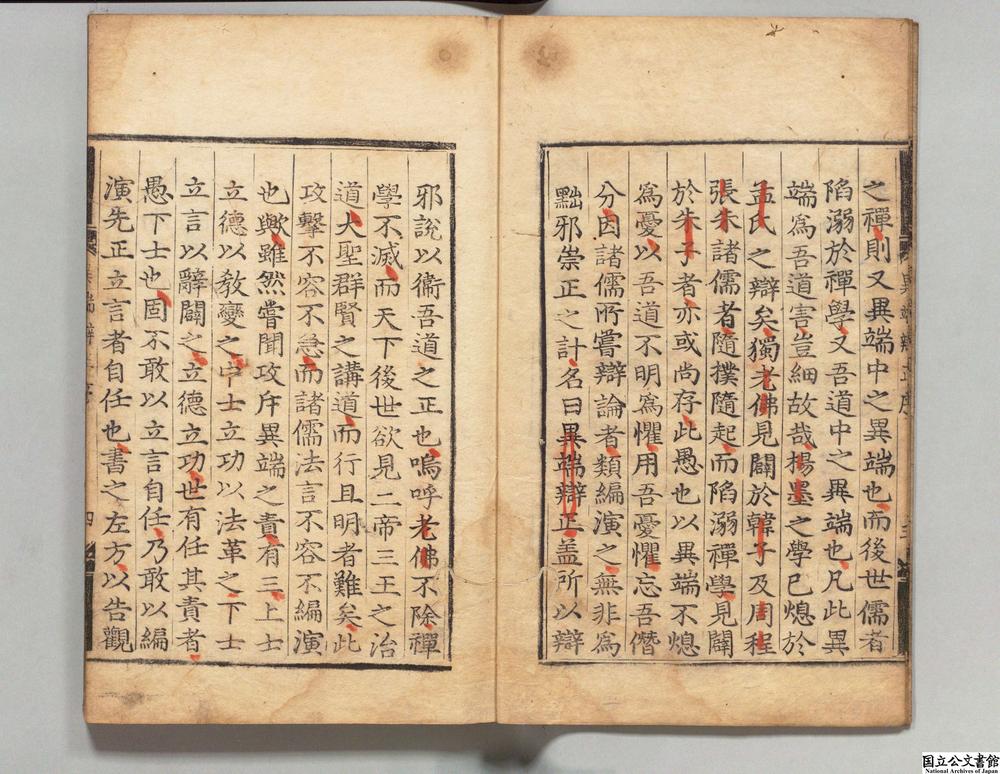 之禪則又異端中之異端也而後世儒者
陷溺於禪學又吾道中之異端也凡此異
端爲吾道害豈細故哉楊墨之學已熄於
孟氏之辯矣獨老佛見闢於韓子及周程
張朱諸儒者隨撲隨起而陷溺禪學見闢
於朱子者亦或尚存此愚也以異端不熄
爲憂以吾道不明爲懼用吾憂懼忘吾僭
分因諸儒所嘗辯論者類編演之無非爲
黜邪崇正之計名曰異端辯正盖所以辯
邪說以衞吾道之正也嗚呼老佛不除禪
學不滅而天下後世欲見二帝三王之治
道大聖群賢之講道而行且明者難矣此
攻擊不容不急而諸儒法言不容不編演
也歟雖然嘗聞攻斥異端之責有三上士
立德以敎變之中士立功以法革之下士
立言以辭闢之立德立功世有任其責者
愚下士也固不敢以立言自任乃敢以編
演先正立言者自任也書之左方以告觀
異端辯正序
三
四
国立公文書館
National Archives of Japan